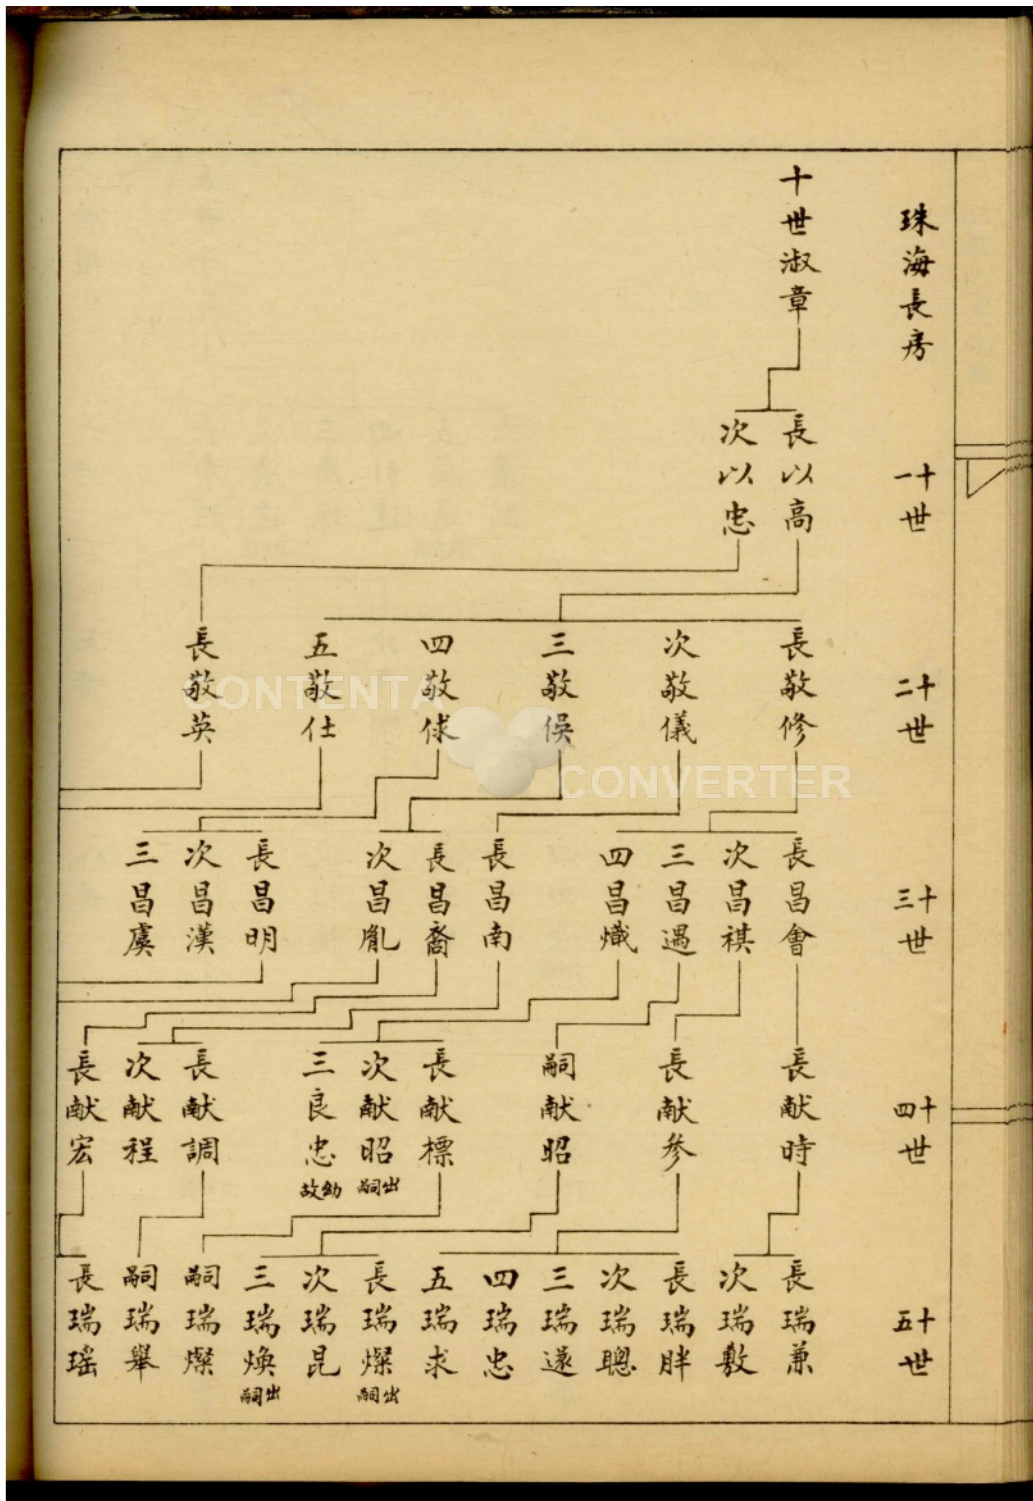 珠海長房
十世淑章
十一世
長以高
次以忠
十二世
長敬修
次敬儀
三敬俁
四敬俅
五敬仕
長敬英
十三世
長昌會
次昌祺
三昌遇
四昌熾
長昌南
長昌裔
次昌胤
長昌明
次昌漢
三昌虞
十四世
長献時
長献參
嗣献昭
長献標
次献昭
出嗣
三良忠
幼故
長献調
次献程
長献宏
十五世
長瑞兼
次瑞敷
長瑞胖
次瑞聰
三瑞遂
四瑞忠
五瑞求
長瑞燦
出嗣
次瑞昆
三瑞煥
出嗣
嗣瑞燦
嗣瑞舉
長瑞瑶
CONTENTA
CONVERTER